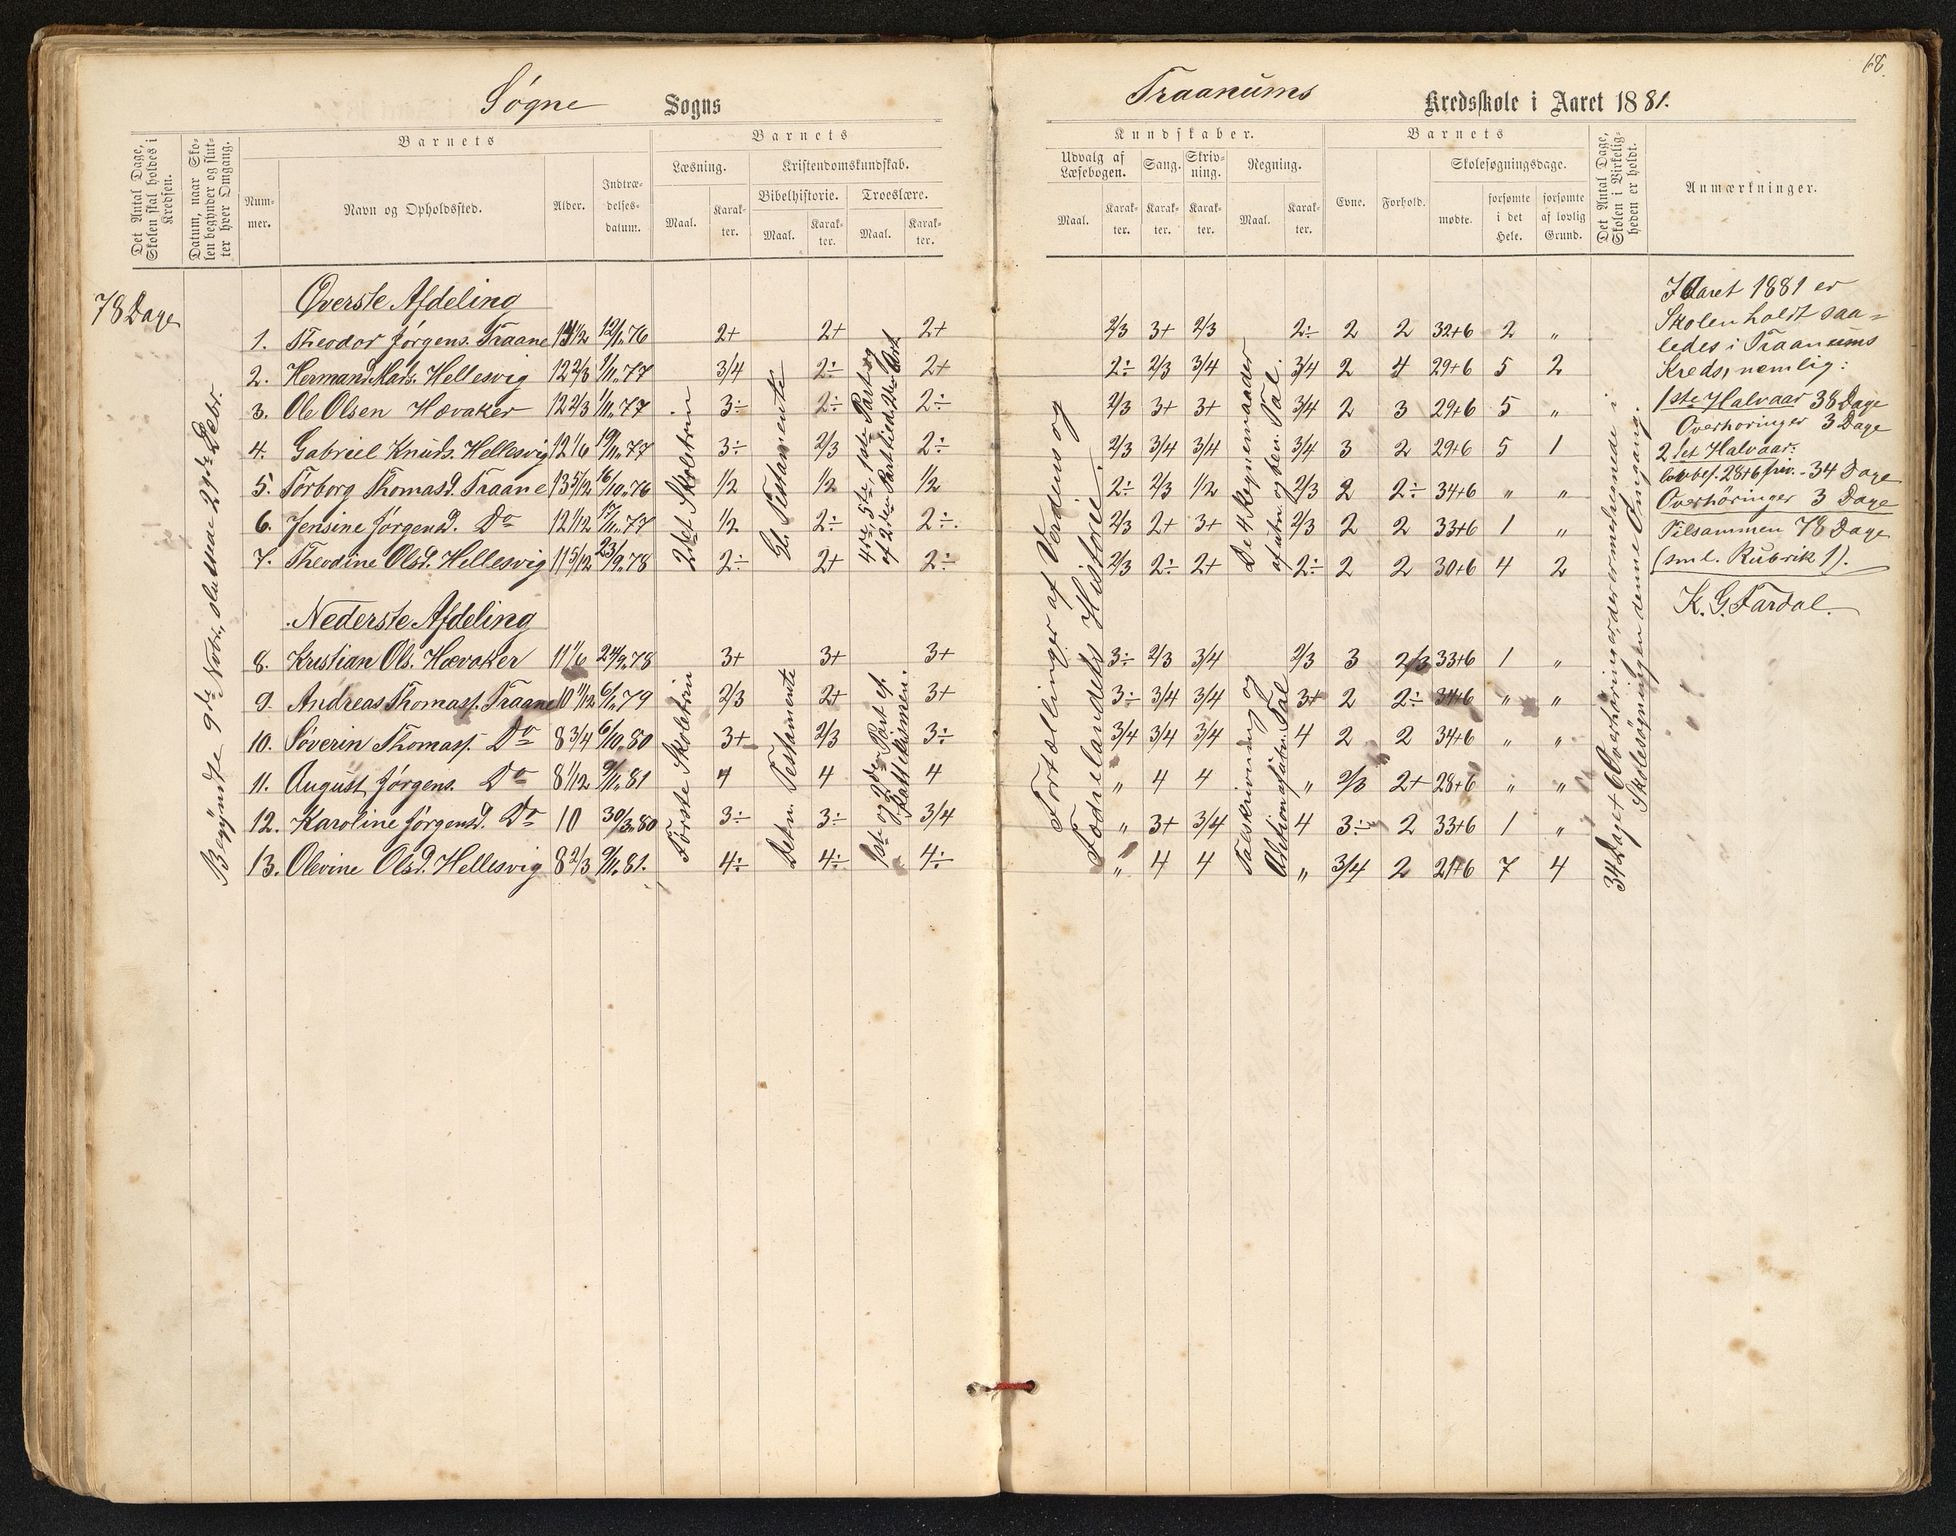 68.
Søgne Sogns
Traanums Kredsskole i Aaret 1881.
Det Antal Dage, Skolen skal holdes i Kredsen.
Datum, naar Skolen begynder og slutter hver Omgang.
Barnets
Nummer.
Navn og Opholdssted.
Alder.
Indtrædelsesdatum.
Barnets
Læsning.
Maal.
Karakter.
Kristendomskundskab.
Bibelhistorie.
Maal.
Karakter.
Troeslære.
Maal.
Karakter.
Kundskaber.
Udvalg af Læsebogen.
Maal.
Karakter.
Sang.
Karakter.
Skrivning.
Karakter.
Regning.
Maal.
Karakter.
Barnets
Evne.
Forhold.
Skolesøgningsdage.
mødte.
forsømte i det Hele.
forsømte af lovlig Grund.
Det Antal Dage, Skolen i Virkeligheden er holdt.
Anmærkninger.
78 Dage
Begyndte 9de Novbr., sluttede 21de Debr.
Øverste Afdeling
1. Theodor Jørgens. Traane 14 1/2 12/1.76 2+ 2+ 2+ 2/3 3+ 2/3 2÷ 2 2 32+6 2 „
2. Herman Mads. Hellesvig 12 2/3 1/11.77 3/4 2÷ 2+ 2÷ 2/3 3/4 3/4 2 4 29+6 5 2
3. Ole Olsen Hævaker 12 2/3 1/11.77 3÷ 2÷ 2÷ 2/3 3+ 3+ 3/4 2 3 29+6 5 „
4. Gabriel Knuds. Hellesvig 12 1/6 19/11.77 3÷ 2/3 2÷ 2/3 3/4 3/4 3/4 3 2 29+6 5 1
5. Torborg Thomasd. Traane 13 5/12 16/10.76 1/2 1/2 1/2 2÷ 2/3 1/2 2/3 2 2÷ 34+6 „ „
6. Jensine Jørgensd. Do 12 1/12 17/11.77 1/2 2÷ 2÷. 2/3 2+ 3+ 2/3 2 2 33+6 1 „
7. Theodine Olsd. Hellesvig 11 5/12 23/9.78 2÷ 2+ 2÷ 2/3 2÷ 2+ 2÷ 2 2 30+6 4 2
2det Skoletrin
Gl. Testamente
4de, 5te, 1ste Part og af 2den Part til 2den Art
De 4 Regnemaader af ubn. og ben. Tal.
Nederste Afdeling
8. Kristian Ols. Hævaker 11 1/6 24/9.78 3+ 3+ 3+ 3÷ 2/3 3/4 2/3 3 2/3 33+6 1 „
9. Andreas Thomass. Traane 10 11/12 6/1.79 2/3 2+ 3+ 3÷ 3/4 3/4 3+ 2 2÷ 34+6 „ „
10. Søverin Thomass. Do 8 3/4 6/10.80 3+ 2/3 3÷ 3/4 3/4 3/4 4 2 2 34+6 „ „
11. August Jørgens. Do 8 1/12 9/11.81 4 4 4 „ 4 4 „ 2/3 2+ 28+6 „ „
12. Karoline Jørgensd. Do 10 30/3.80 3÷ 3÷ 3/4 „ 3+ 3/4 4 3÷ 2 33+6 1 „
13. Olevine Olsd. Hellesvig 8 2/3 9/11.81. 4÷ 4÷ 4÷ „ 4 4 „ 3/4 2 21+6 7 4
Første Skoletrin
Det n. Testamente
1ste og 2den Part af Kattekismen.
Fortællinger af Verdens og Fædrelandets Historie.
Talskrivning og Addition af ubn. Tal
34 Dage + Overhøringer der er medregnede i Skolesøgningen denne Omgang.
I Aaret 1881 er
Skolen holdt saa=
ledes i Traanums
Kreds, nemlig:
1ste Halvaar 38 Dage
Overhøringer 3 Dage
2det Halvaar:
lovbef. 28+6 friv. - 34 Dage
Overhøringer 3 Dage
Tilsammen 78 Dage
(sml. Rubrik 1).
K. G. Fardal.